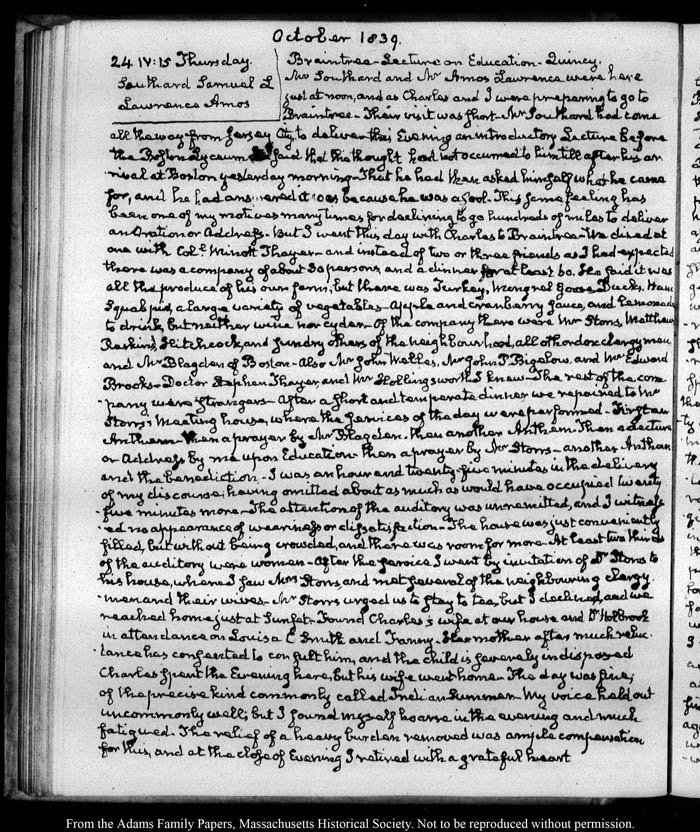 October 1839.
24. IV:15 Thursday.
Southard Samuel L
Lawrence Amos
Braintree - Lecture on Education - Quincy.
Mr Southard and Mr Amos Lawrence were here
just at noon, and as Charles and I were preparing to go to
Braintree - Their visit was short - Mr Southard had come
all the way from Jersey City to deliver this Evening an introductory Lecture before
the Boston Lyceum said that the thought had not occurred to him till after his ar
rival at Boston yesterday morning - That he had then asked himself what he came
for, and he had answered it was because he was a fool. This same feeling has
been one of my motives many times for declining to go hundreds of miles to deliver
an Oration or Address - But I went this day with Charles to Braintree - We dined at
one with Coll. Minott Thayer - and instead of two or three friends as I had expected
there was a company of about 30 persons, and a dinner for at least 60. He said it was
all the produce of his own farm, but there was Turkey, Mongrel Goose, Ducks, Ham
Squab pie, a large variety of vegetables - Apple and cranberry sauce, and Lemonade
to drink, but neither wine nor cyder - Of the company there were Mr Storrs, Matthews
Perkins, Hitchcock, and sundry others of the neighbourhood, all orthodox clergymen,
and Mr Blagden of Boston - Also Mr John Welles, Mr John P. Bigelow, and Mr Edward
Brooks - Doctor Stephen Thayer, and Mr Hollingsworth I knew - The rest of the com
pany were strangers - After a short and temperate dinner we repaired to Mr
Storrs's Meeting house, where the services of the day were performed - First an
Anthem - then a prayer by Mr Blagden. then another Anthem - Then a Lecture
or Address by me upon Education - then a prayer by Mr Storrs - another Anthem
and the benediction - I was an hour and twenty five minutes in the delivery
of my discourse, having omitted about as much as would have occupied twenty
five minutes more - The attention of the auditory was unremitted, and I witness
ed no appearance of weariness or dissatisfaction - The house was just conveniently
filled, but without being crowded, and there was room for more - At least two thirds
of the auditory were women - After the service I went by invitation of Dr Storrs to
his house, where I saw Mrs Storrs, and met several of the neighbouring clergy
men and their wives - Mr Storrs urged us to stay to tea, but I declined, and we
reached home just at Sunset - Found Charles's wife at our house and Dr Holbrook
in attendance on Louisa C. Smith and Fanny - Her mother after much reluc
tance has consented to consult him, and the child is severely indisposed
Charles spent the Evening here, but his wife went home - The day was fine,
of the precise kind commonly called Indian Summer - My voice held out
uncommonly well; but I found myself hoarse in the evening and much
fatigued - The relief of a heavy burden removed was ample compensation
for this, and at the close of Evening I retired with a grateful heart
From the Adams Family Papers, Massachusetts Historical Society. Not to be reproduced without permission.